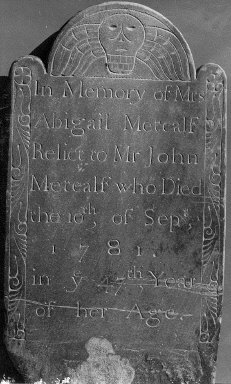 In Memory of Mrs
Abigail Metcalf
Relict to Mr. John
Metcalf who Died
the 10th, of Sepr,
1781.
in ye 47th Year
of her Age.